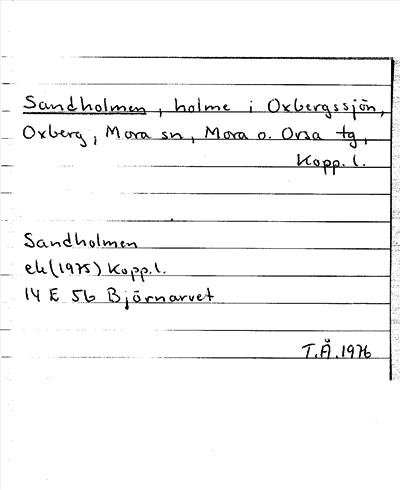 Sandholmen, holme i Oxbergssjön,
Oxberg, Mora sn, Mora o. Orsa tg,
Kopp. l.
Sandholmen
ek (1975) Kopp. l.
14 E 5b Björnarvet
T.Å. 1976